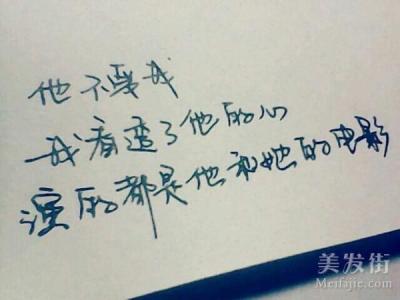 他不要我
我看透了他的心
演的都是他和她的电影
美发街
Meifajie.com